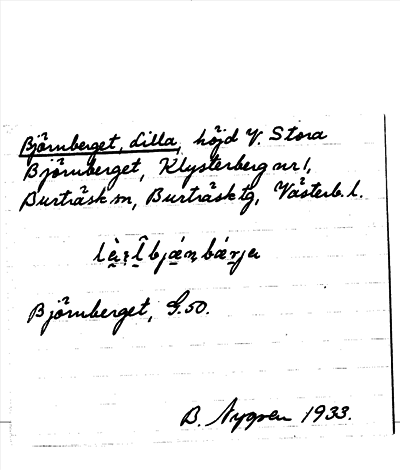 Björnberget, Lilla, höjd V. Stora
Björnberget, Klysterberg nr 1,
Burträsk sn, Burträsk tg, Västerb. l.
Björnberget, G.50.
B. Nygren 1933.